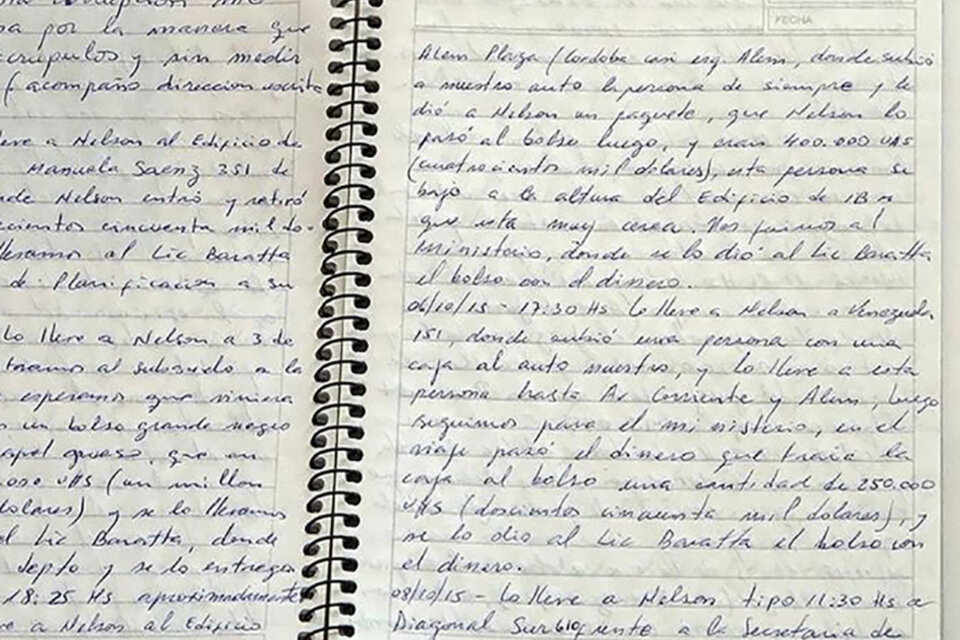 por la manera que
escrupulos y sin medir
(acompaño direccion escrita
lleve a Nelson al Edificio de
Manuela Saenz 351 de
donde Nelson entró y retiró
cientos cincuenta mil do-
llevamos al Lic Baratta
de Planificacion a su
Lo lleve a Nelson a 3 de
al subsuelo a la
esperamos que viniera
un bolso grande negro
papel grueso, que en
000 U$S (un millon
dolares) y se lo llevamos
al Lic Baratta, donde
depto y se lo entrega
18:25 Hs aproximadamente
lleve a Nelson al Edificio
FECHA
Alem Plaza (Cordoba casi esq. Alem, donde subió
a nuestro auto la persona de siempre y le
dió a Nelson un paquete, que Nelson lo
pasó al bolso luego, y eran 400.000 U$S
(cuatrocientos mil dolares), esta persona se
bajo a la altura del Edificio de IBM
que está muy cerca. Nos fuimos al
Ministerio, donde se lo dió al Lic Baratta
el bolso con el dinero.
06/10/15 - 17:30 Hs Lo lleve a Nelson a Venezuela
151, donde subió una persona con una
caja al auto nuestro, y lo lleve a esta
persona hasta Av Corriente y Alem, luego
seguimos para el ministerio, en el
viaje pasó el dinero que traia la
caja al bolso una cantidad de 250.000
U$S (doscientos cincuenta mil dolares), y
se lo dio al Lic Baratta el bolso con
el dinero.
08/10/15 - Lo lleve a Nelson tipo 11:30 Hs a
Diagonal Sur 610 frente a la Secretaria de